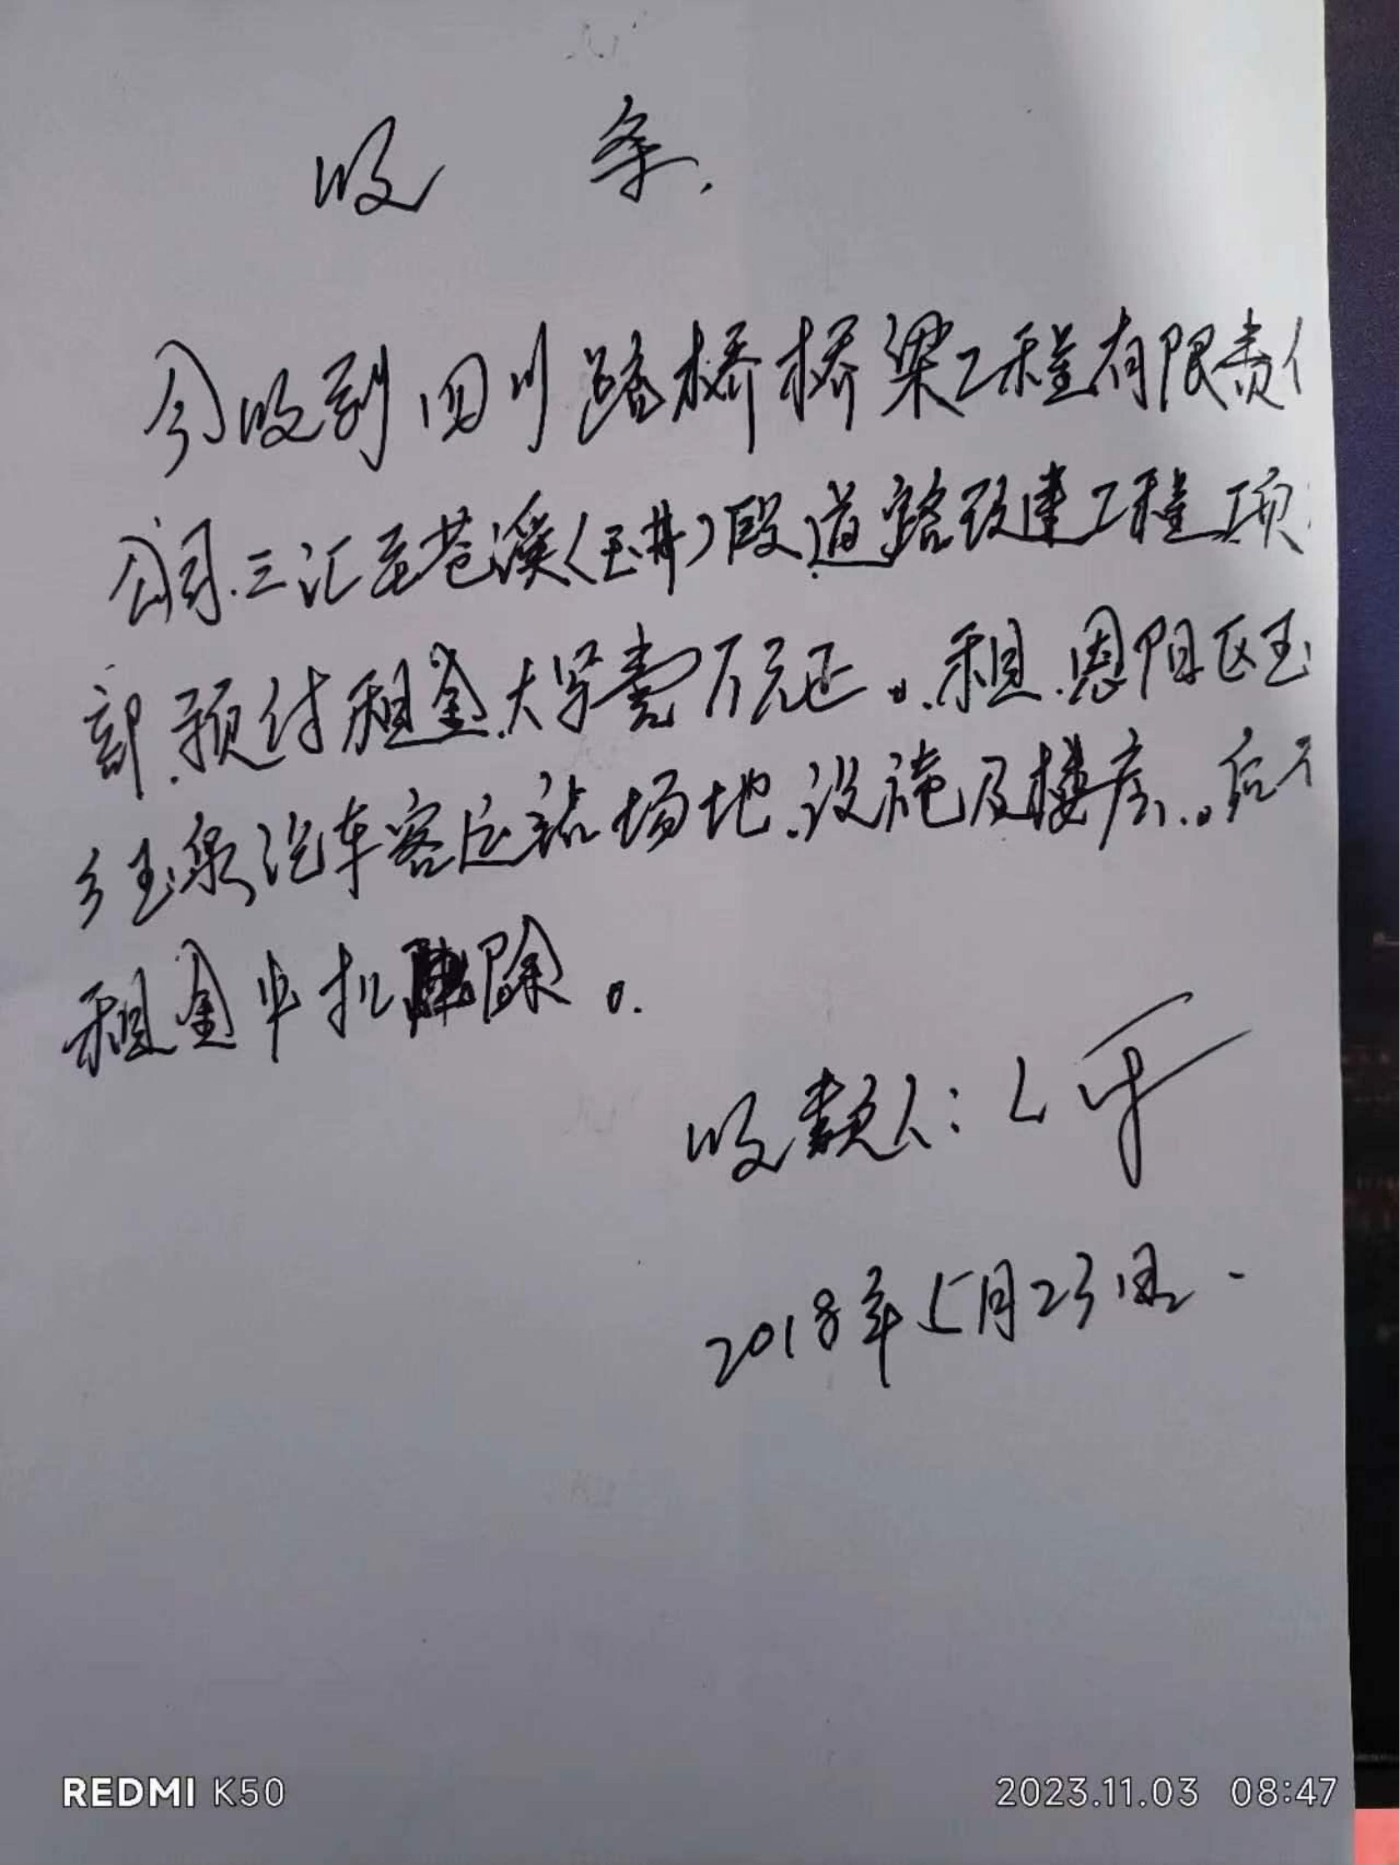 收 条.
今收到四川路桥桥梁工程有限责任
公司.三汇至苍溪(玉井)段道路改建工程项
部.预付租金.大写壹万元正。.租.恩阳区玉
乡玉泉汽车客运站场地.设施及楼房.。后于
租金中扣除。
收款人:
2018年5月23日.
REDMI K50
2023.11.03 08:47